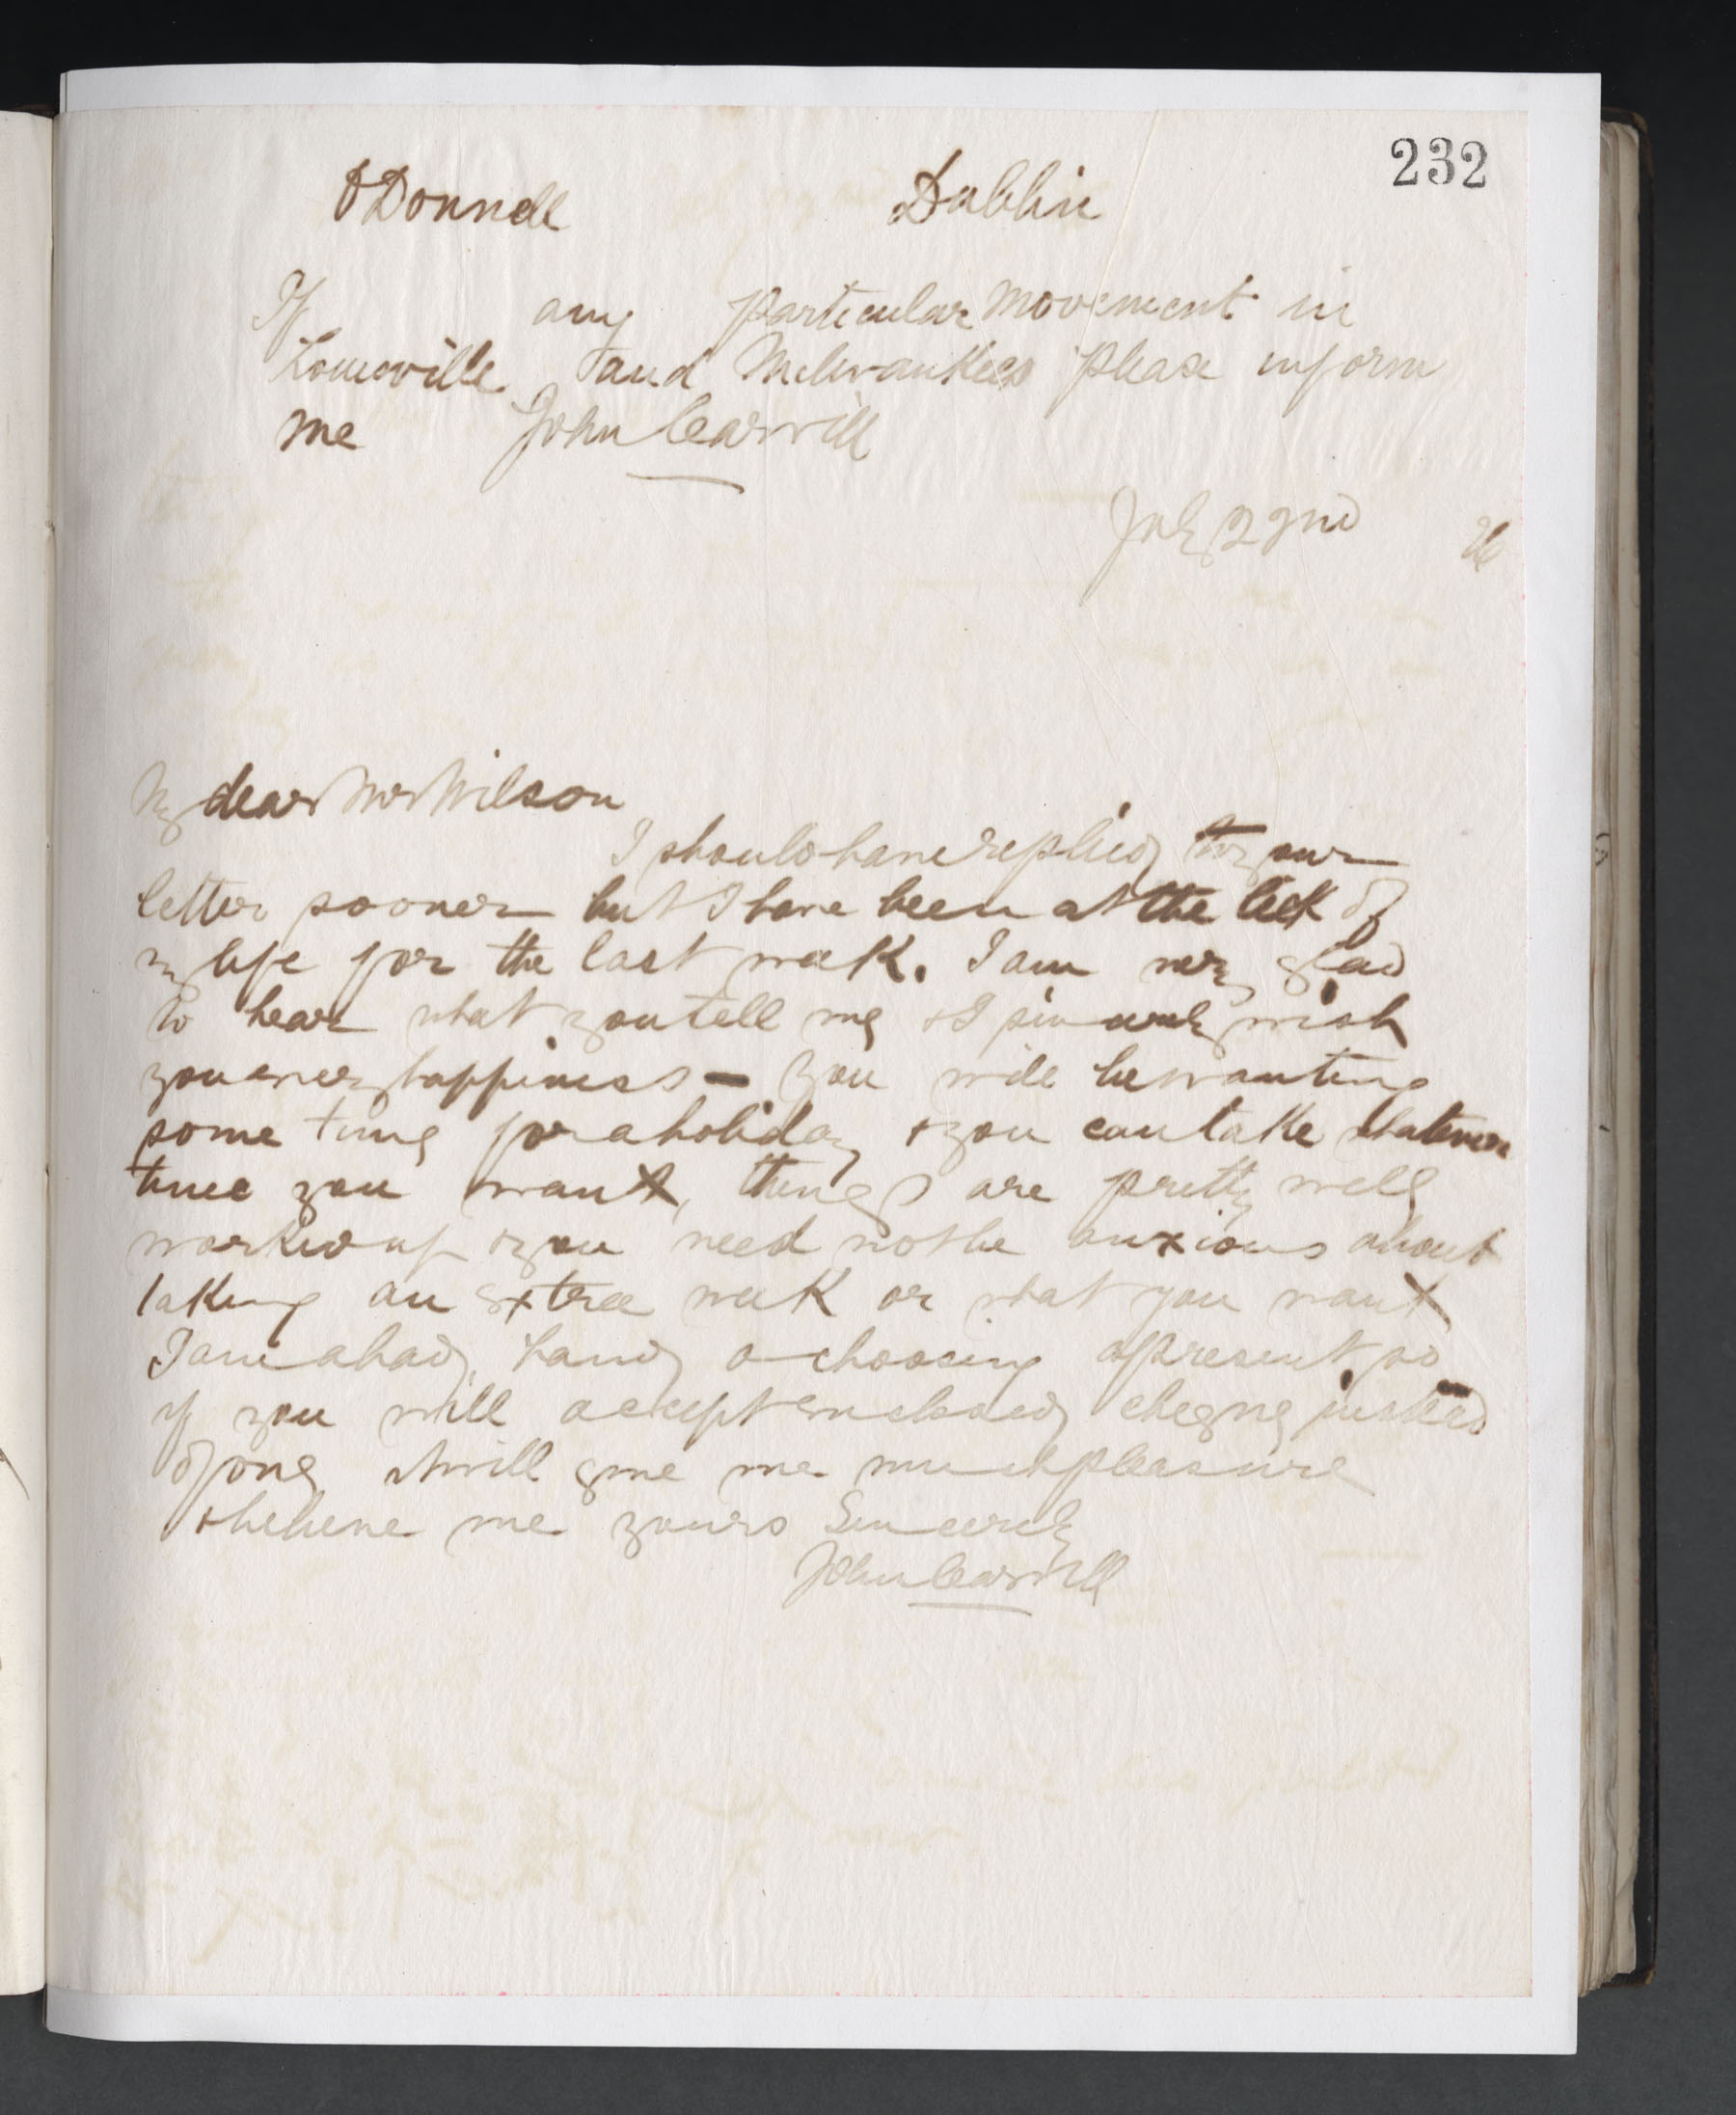 232
O'Donnell Dublin
If any particular movement in
Louisville and Milwaukees please inform
me John Carvill
July 22nd
My dear Mr Wilson
I should have replied to your
letter sooner but I have been at the
my life for the last week. I am very glad
to hear what you tell me & I sincerely wish
you every happiness - You will be wanting
some time for a holiday & you can take whatever
time you want, things are pretty well
worked up & you need not be anxious about
taking an extree week or what you want
I am a bad hand a choosing a present so
if you will accept enclosed cheque instead
of one it will give me much pleasure
& believe me yours Sincerely
John Carvill